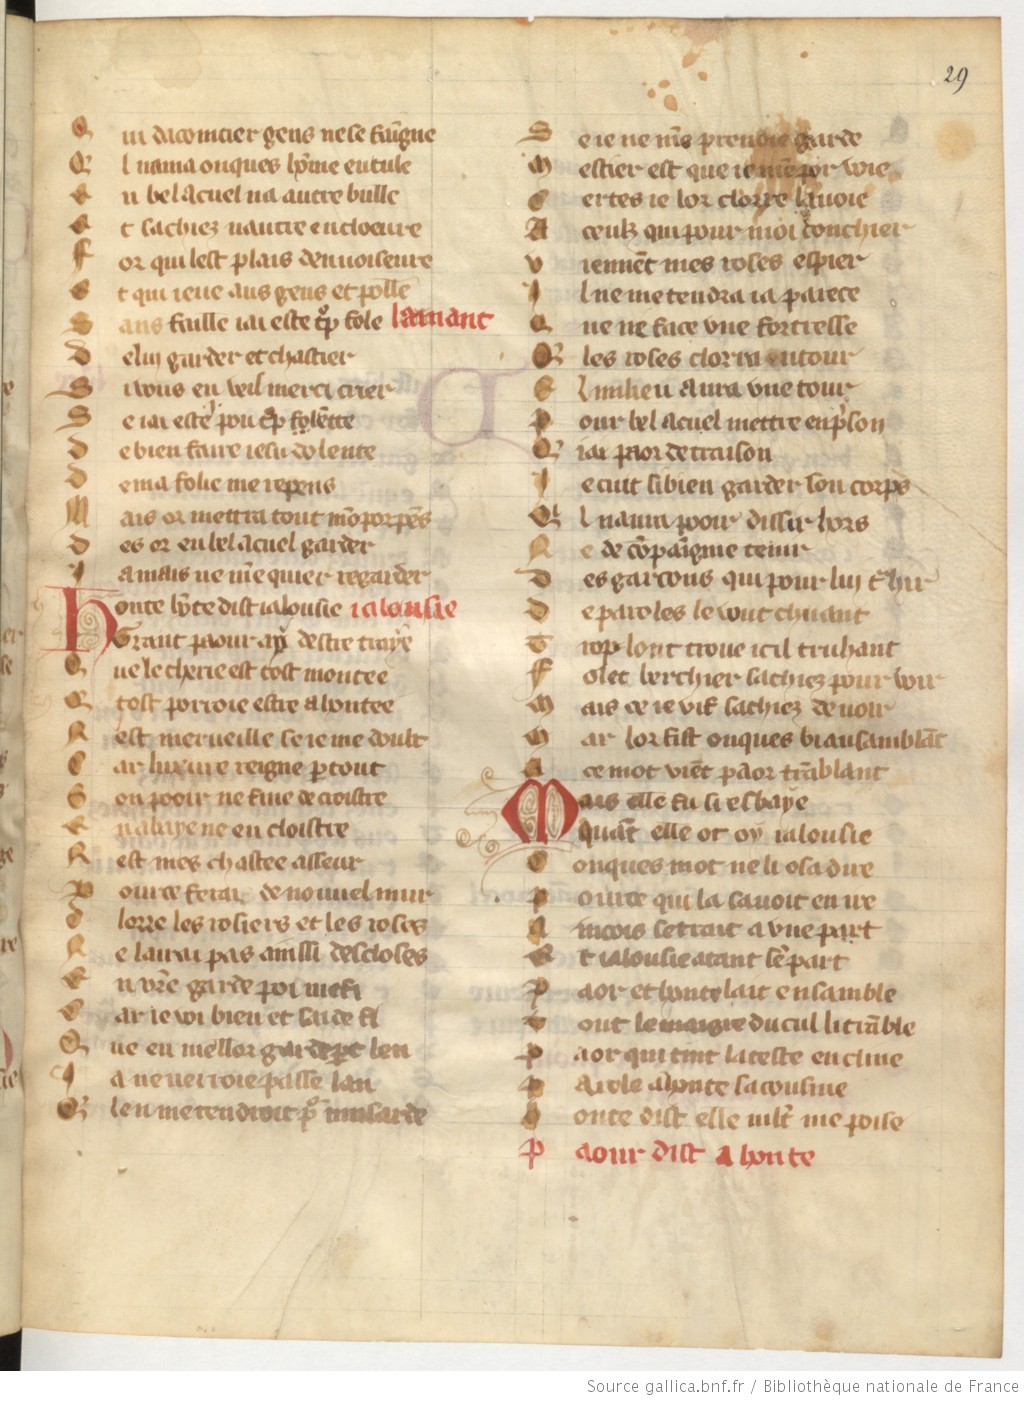 29
Q ui dacointier gens ne se faingne
Q l nama onques hom̃e entule
E n bel acuel na autre bulle
E t sachiez nautre encloeure
F or quil est plais denvoiseure
E t qui ieue aus gens et polle
S ans faille iai este trop fole lamant
D e lui garder et chastier
S i vous en veil merci crier
S e iai este j pou trop folette
D e bien faire ie sui dolente
D e ma folie me repens
M ais or mettrai tout mon porpens
D es or en bel acuel garder
J amais ne men quier regarder
Honte honte dist ialousie ialousie
Grant paour ay destre traye
Q ue lecherie est tost montee
E tost porroie estre ahontee
N est merveille se ie me doult
C ar luxure reigne partout
S on pooir ne fine de croistre
E n abaye ne en cloistre
N est mes chastee asseur
P our ce ferai de nouvel mur
C lorre les rosiers et les roses
N e lairai pas ainssi descloses
E n vostre garde poi me fi
C ar ie voi bien et sai de fi
Q ue en mellor garde pert len
J a ne verroie passe lan
Q len me tendroit pour musarde
S e ie ne men prenoie garde
M estier est que ie men porvoie
C ertes ie lor clorre la voie
A ceulz qui pour moi conchier
V iennent mes roses espier
J l ne me tendra ia parece
Q ue ne face une forteresse
Q les roses clorra entour
E l milieu aura une tour
P our bel acuel mettre en prison
Q iai paor de traison
J e cuit si bien garder son corps
Q l naura pooir dissir hors
N e de compaignie tenir
D es garcons qui pour lui
D e paroles le vont chuiant
T rop lont trove icil truhant
F olet berchier sachiez pour voir
M ais ce ie vif sachiez de voir
M ar lor fist onques biau samblant
A ce mot vient paor tramblant
Mais elle fu si esbaye
quant elle ot oy ialousie
C onques mot ne li osa dire
P our ce qui la savoit en ire
A incois se trait a une part
E t ialousie atant sen part
P aor et honte lait ensamble
T out le maigre du cul li tramble
P aor qui tint la teste encline
P arole a honte sa cousine
H onte dist elle mlt me poise
P aour dist a honte
Source gallica.bnf.fr / Bibliothèque nationale de France